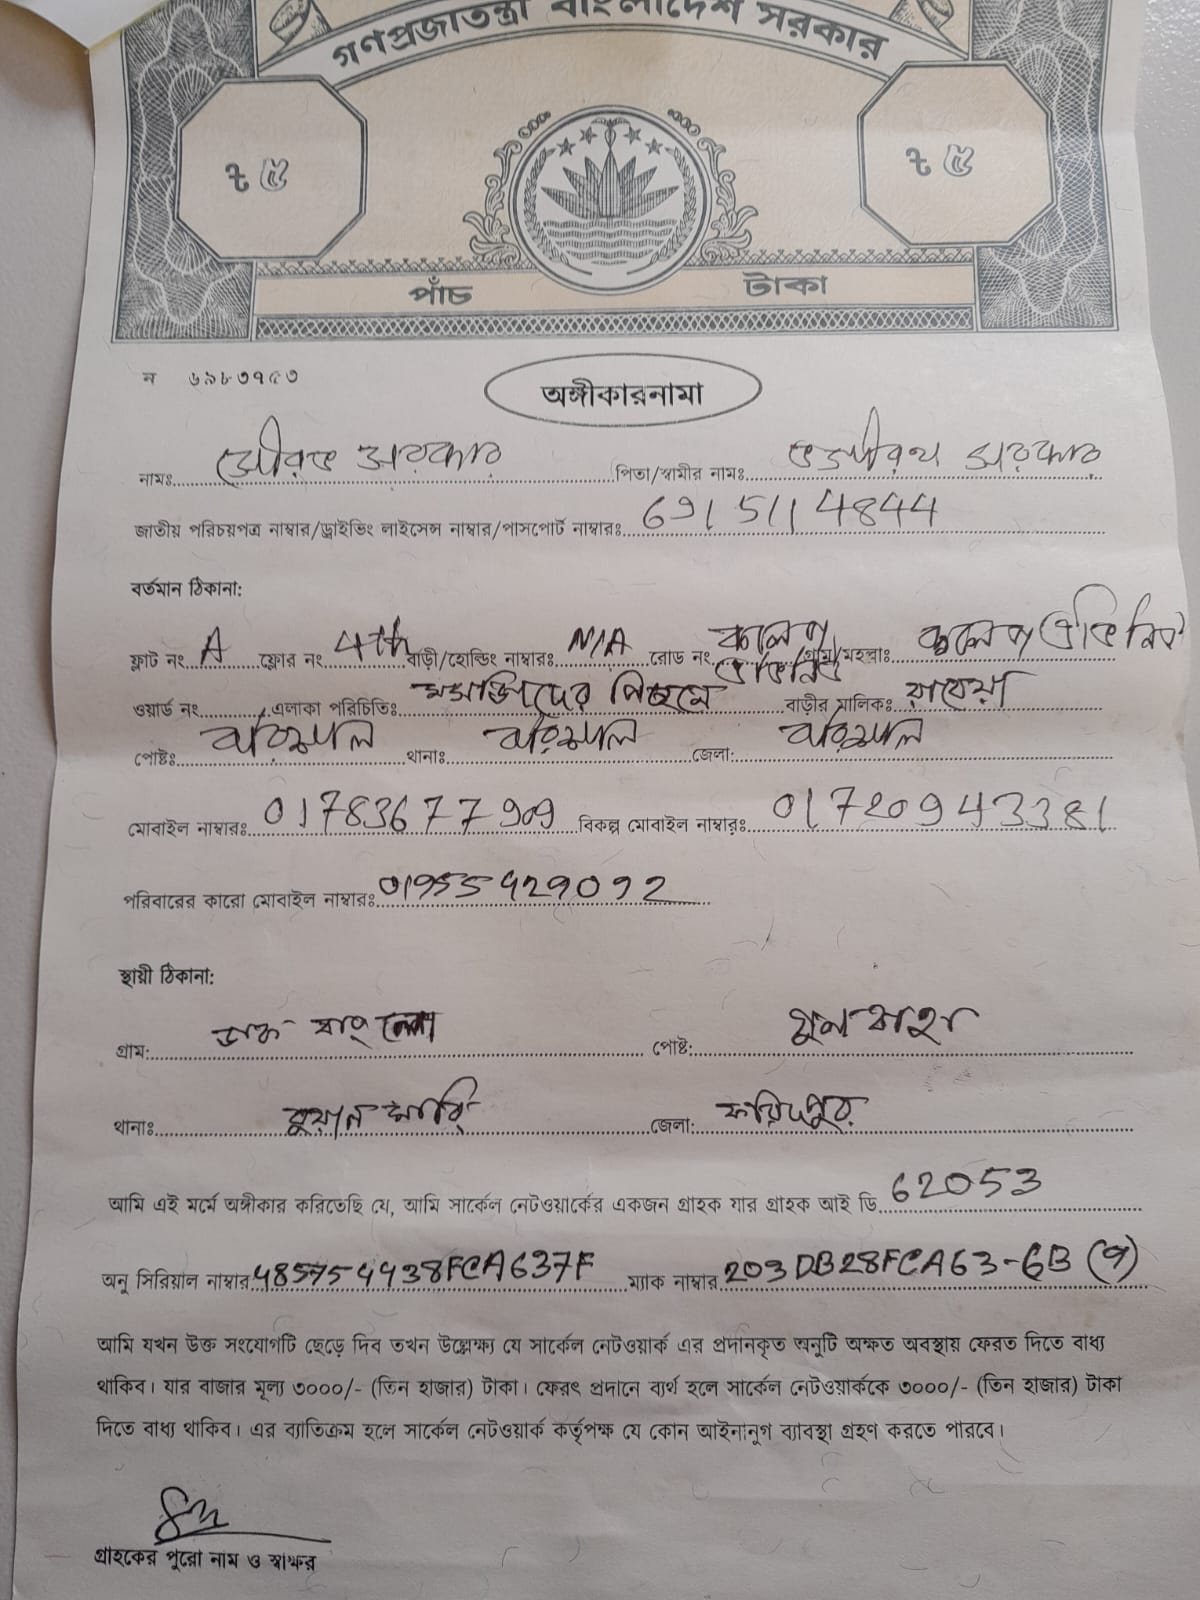 গণপ্রজাতন্ত্রী বাংলাদেশ সরকার
৳ ৫ ৳ ৫
পাঁচ টাকা
ন ৬৯৮৩৭৫৩
অঙ্গীকারনামা
নামঃ সৌরভ সরকার পিতা/স্বামীর নামঃ সরকার
জাতীয় পরিচয়পত্র নাম্বার/ড্রাইভিং লাইসেন্স নাম্বার/পাসপোর্ট নাম্বারঃ 6915114844
বর্তমান ঠিকানা:
ফ্লাট নং A ফ্লোর নং 4th বাড়ী/হোল্ডিং নাম্বারঃ N/A রোড নং কলেজ /গ্রাম/মহল্লাঃ কলেজ
ওয়ার্ড নং এলাকা পরিচিতিঃ মসজিদের পিছনে বাড়ীর মালিকঃ
পোষ্টঃ বরিশাল থানাঃ বরিশাল জেলা: বরিশাল
মোবাইল নাম্বারঃ 01783677909 বিকল্প মোবাইল নাম্বারঃ 01720943381
পরিবারের কারো মোবাইল নাম্বারঃ
স্থায়ী ঠিকানা:
গ্রাম: পোষ্ট:
থানাঃ জেলা: ফরিদপুর
আমি এই মর্মে অঙ্গীকার করিতেছি যে, আমি সার্কেল নেটওয়ার্কের একজন গ্রাহক যার গ্রাহক আই ডি 62053
অনু সিরিয়াল নাম্বার 485754438FCA637F ম্যাক নাম্বার 203DB28FCA63-6B (9)
আমি যখন উক্ত সংযোগটি ছেড়ে দিব তখন উল্লেক্ষ্য যে সার্কেল নেটওয়ার্ক এর প্রদানকৃত অনুটি অক্ষত অবস্থায় ফেরত দিতে বাধ্য
থাকিব। যার বাজার মূল্য ৩০০০/- (তিন হাজার) টাকা। ফেরৎ প্রদানে ব্যর্থ হলে সার্কেল নেটওয়ার্ককে ৩০০০/- (তিন হাজার) টাকা
দিতে বাধ্য থাকিব। এর ব্যাতিক্রম হলে সার্কেল নেটওয়ার্ক কর্তৃপক্ষ যে কোন আইনানুগ ব্যাবস্থা গ্রহণ করতে পারবে।
গ্রাহকের পুরো নাম ও স্বাক্ষর